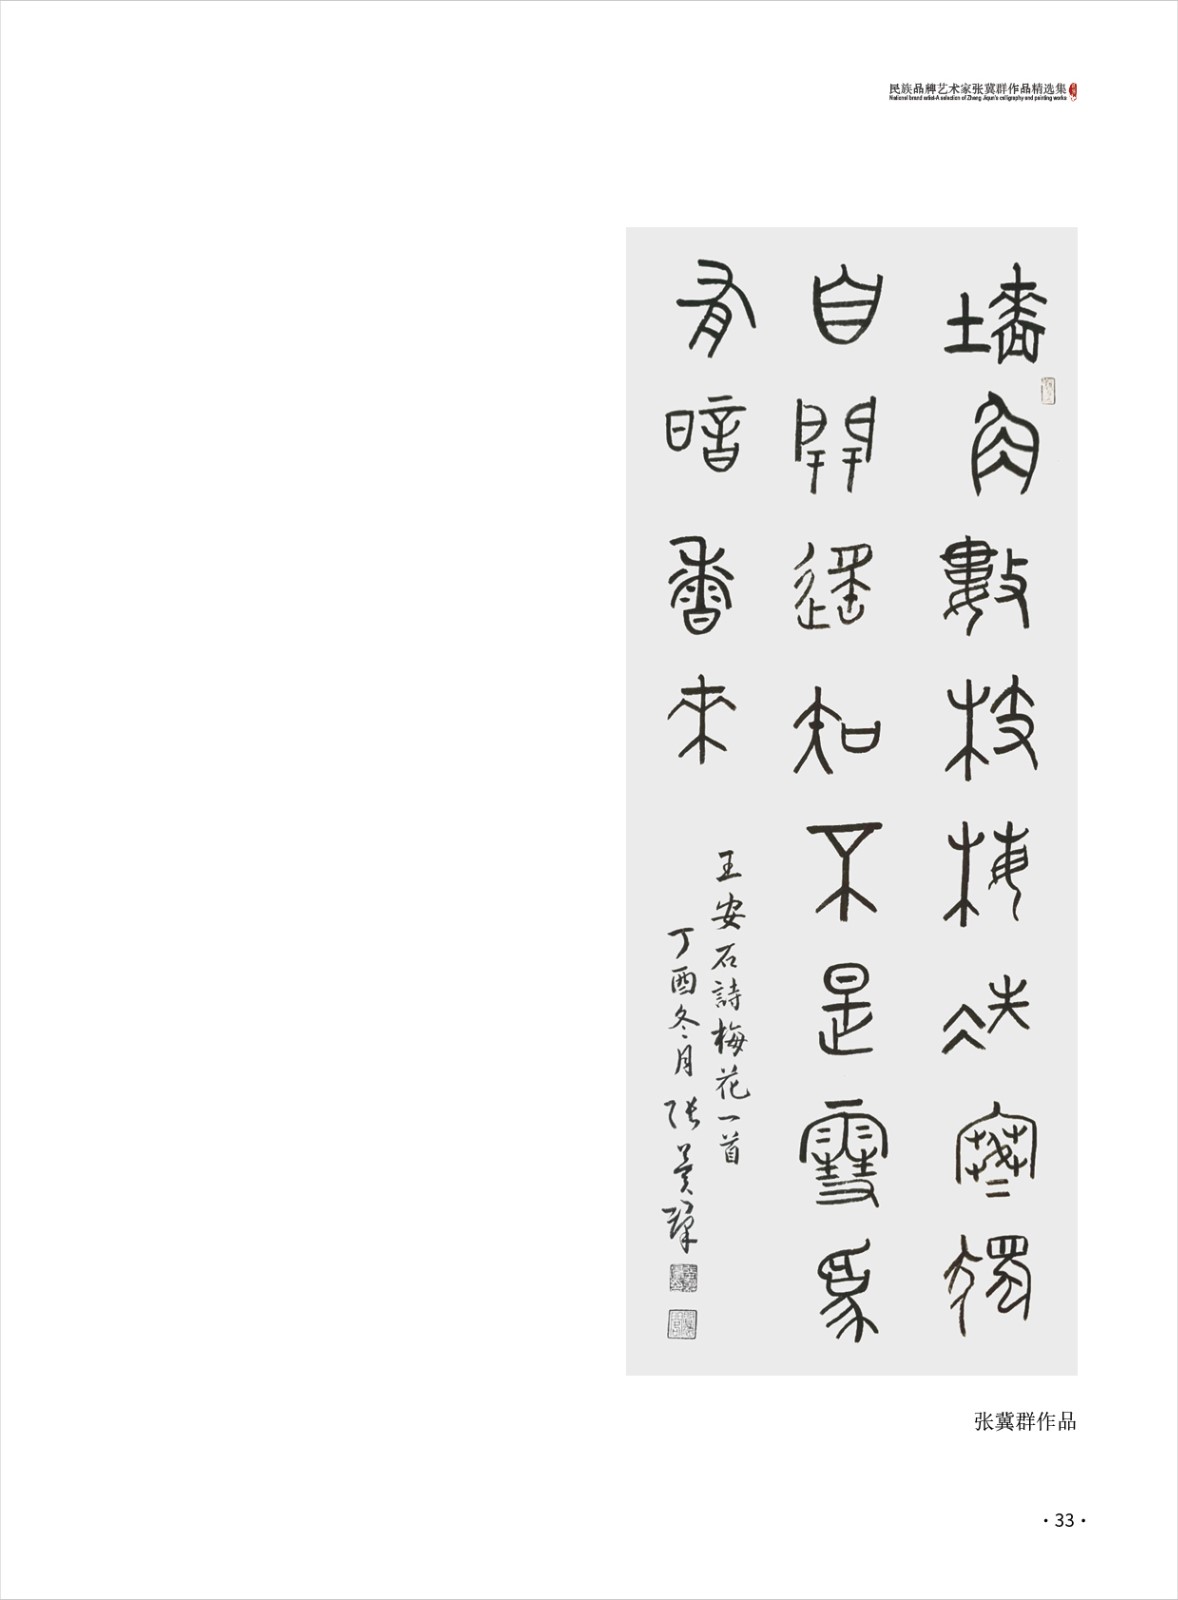 民族品牌艺术家张冀群作品精选集
National brand artist-A selection of Zhang Jiqun's calligraphy and painting works
墙角數枝梅凌寒獨
自開遥知不是雪為
有暗香来
王安石詩梅花一首
丁酉冬月張冀群
张冀群作品
·33·